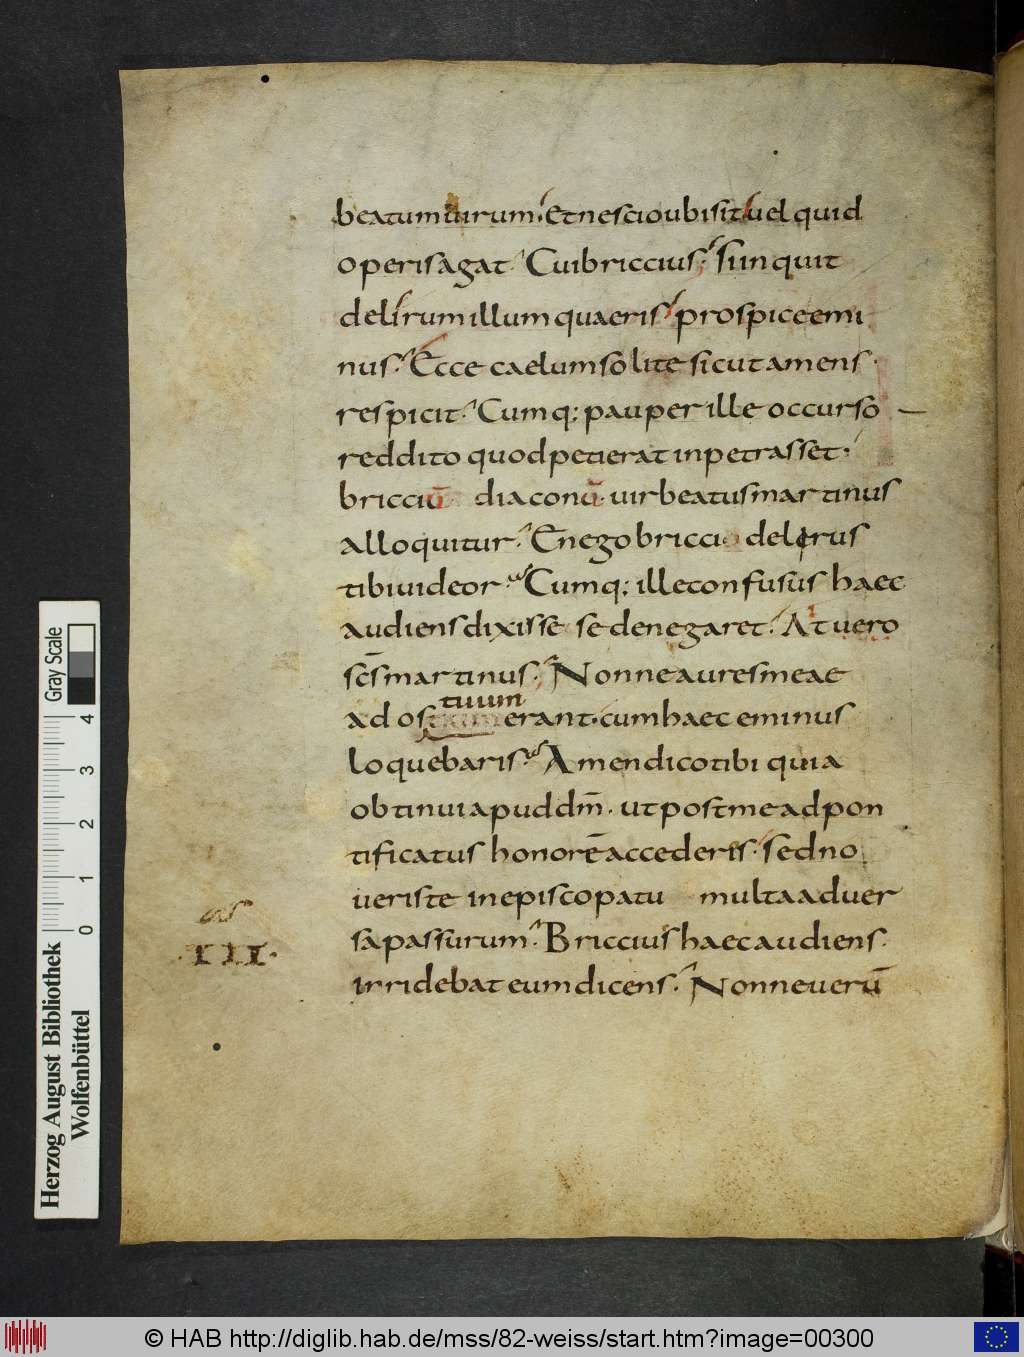 beatum uirum· Et nescio ubi sit uel quid
operis agat· Cui briccius· si inquit
delirum illum quaeris prospice emi
nus· Ecce caelum solite sicut amens·
respicit· Cumq; pauper ille occurso
reddito quod petierat inpetrasset·
bricciū diaconū· uir beatus martinus
alloquitur· En ego bricci delirus
tibi uideor· Cumq; ille confusus haec
audiens dixisse se denegaret· At uero
sc̄s martinus· Nonne aures meae
tuum
ad os erant· cum haec eminus
loquebaris· Amen dico tibi quia
obtinui apud dm̄· ut post me ad pon
tificatus honorē accederis· sed no
ueris te in episcopatu multa aduer
sa passurum· Briccius haec audiens·
irridebat eum dicens· Nonne uerū
·III·
Herzog August Bibliothek
Wolfenbüttel
0 1 2 3 4
Gray Scale
© HAB http://diglib.hab.de/mss/82-weiss/start.htm?image=00300